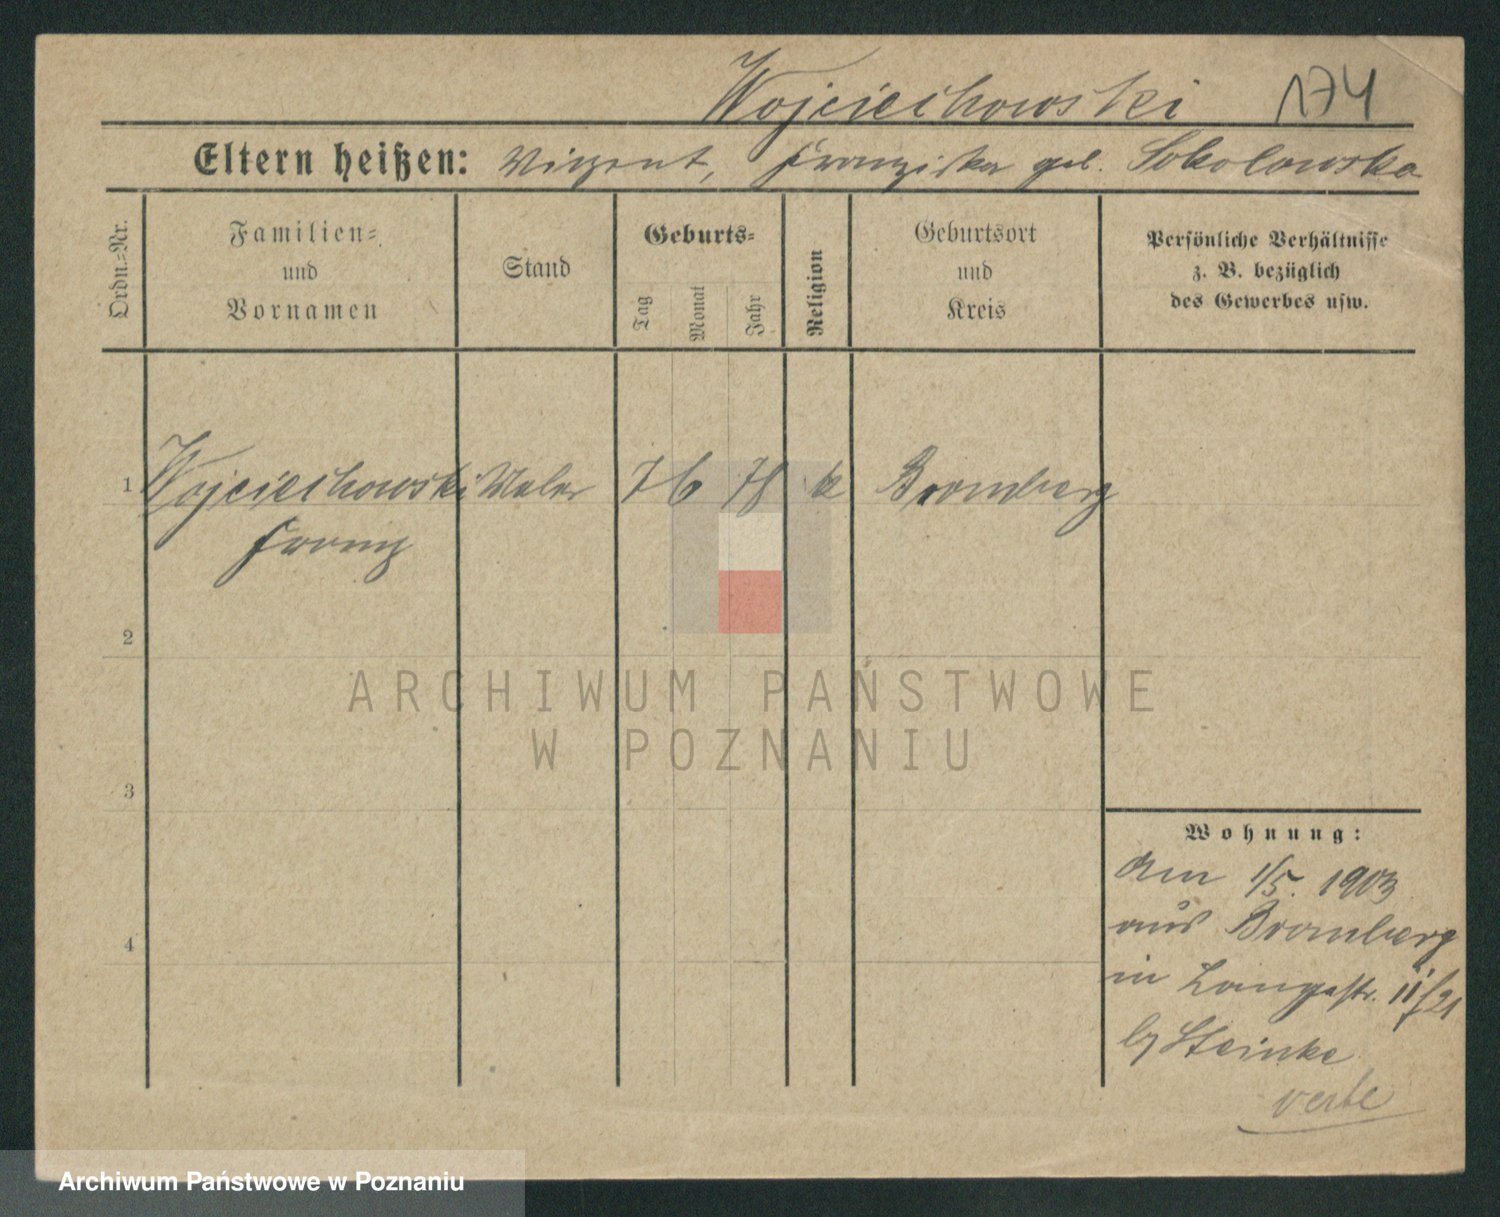 Wojciechowski 174
Eltern heißen: Vinzent, Franziska geb. Sokolowska
Ordn.-Nr.
Familien-
und
Vornamen
Stand
Geburts-
Tag
Monat
Jahr
Religion
Geburtsort
und
Kreis
Persönliche Verhältnisse
z. B. bezüglich
des Gewerbes usw.
1 Wojciechowski Maler 7 6 78 k Bromberg
Franz
2
ARCHIWUM PAŃSTWOWE
W POZNANIU
3
Wohnung:
Am 1/5. 1903
aus Bromberg
4
in Langestr. 11/21
by Steinke
verte
Archiwum Państwowe w Poznaniu